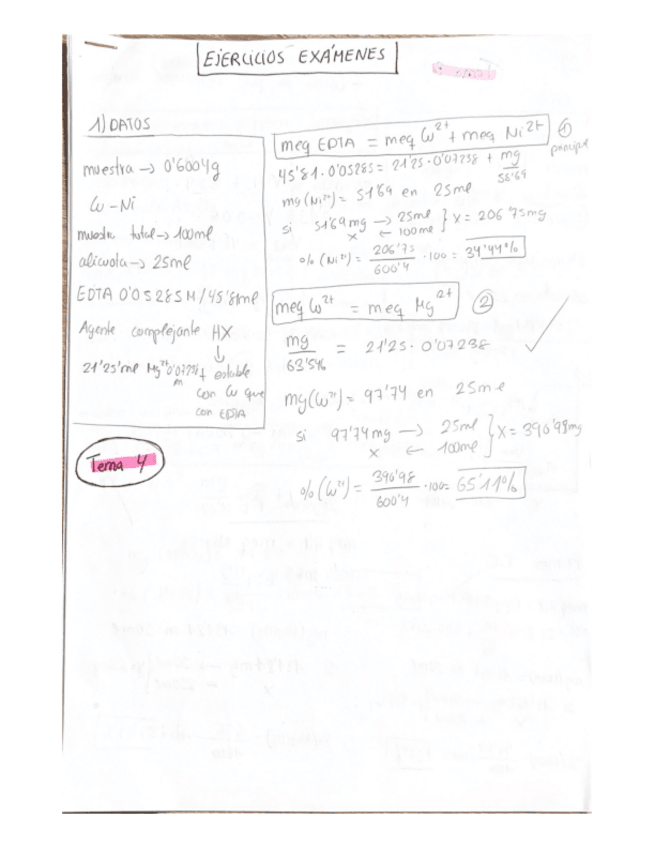 EJERCICIOS EXÁMENES
1) DATOS
muestra → 0'6004g
Cu - Ni
muestra total → 100ml
alicuota → 25ml
EDTA 0'05285M / 45'81ml
Agente complejante HX
↓
21'25 ml Mg²⁺ 0'07238 M + estable
con Cu que
con EDTA
Tema 4
meq EDTA = meq Cu²⁺ + meq Ni²⁺ ① principal
45'81 · 0'05285 = 21'25 · 0'07238 + mg / 58'69
mg (Ni²⁺) = 51'69 en 25ml
si 51'69 mg → 25ml } x = 206'75mg
x ← 100ml
% (Ni²⁺) = 206'75 / 600'4 · 100 = 34'44%
meq Cu²⁺ = meq Mg²⁺ ②
mg / 63'546 = 21'25 · 0'07238
mg (Cu²⁺) = 97'74 en 25ml
si 97'74 mg → 25ml } x = 390'98mg
x ← 100ml
% (Cu²⁺) = 390'98 / 600'4 · 100 = 65'11%